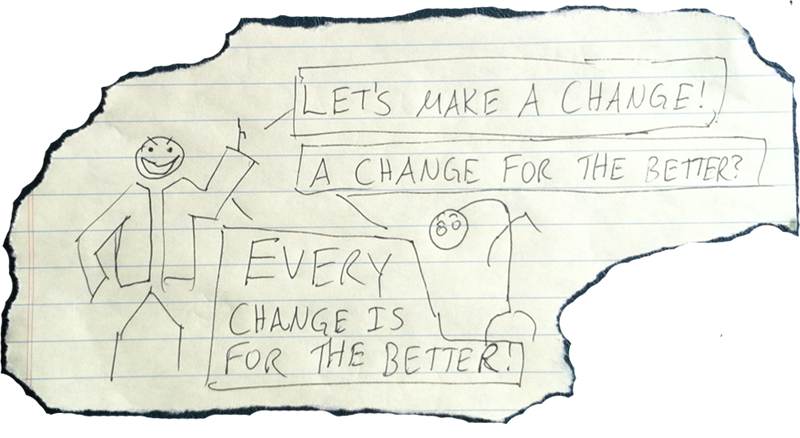 LET'S MAKE A CHANGE!
A CHANGE FOR THE BETTER?
EVERY
CHANGE IS
FOR THE BETTER!